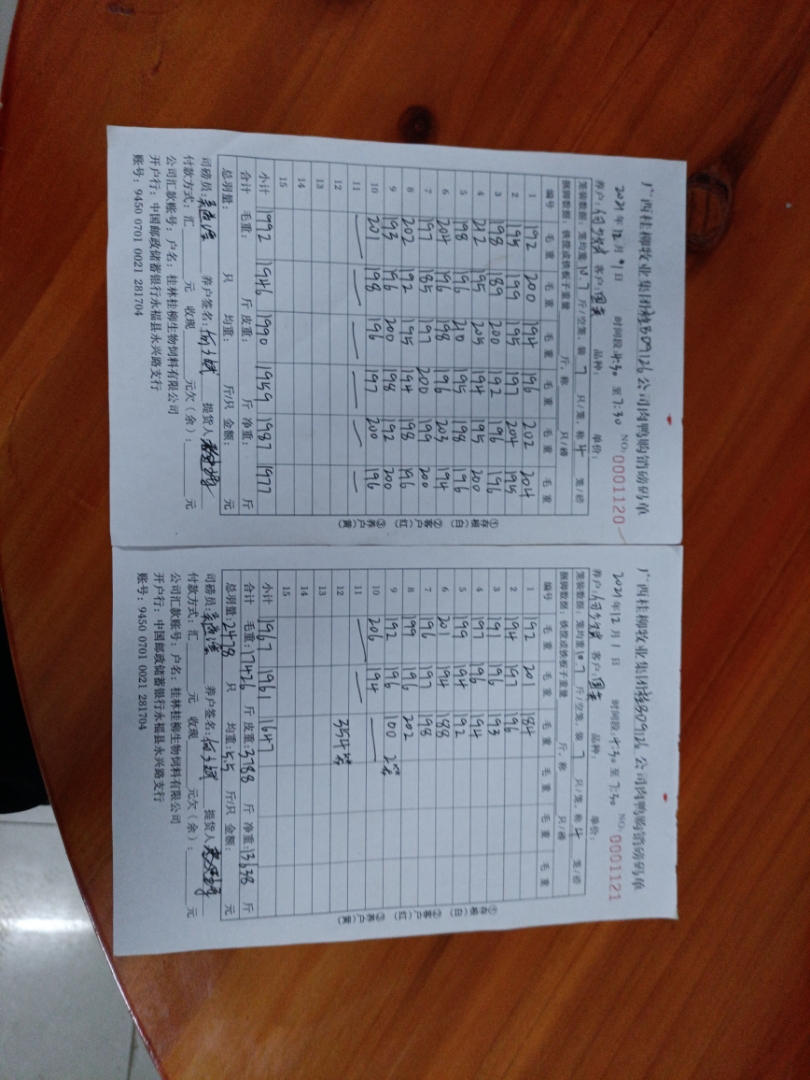 广西桂柳牧业集团 公司肉鸭购销磅码单
2021年12月1日 时间段:4:30 至 7:30 NO: 0001120
养户: 客户: 品种: 单价:
笼装数据: 笼均重10.7斤/空笼、装 7 只/笼、称 4 笼/磅
捆脚数据: 铁搅成铁板子重量 斤、称 只/磅
编号 毛重 毛重 毛重 毛重 毛重 毛重
1 192 200 194 196 202 204
2 195 199 195 197 204 195
3 198 189 200 192 196 196
4 212 195 205 194 195 200
5 198 196 210 195 198 196
6 204 196 198 196 203 194
7 197 185 197 200 199 200
8 202 192 195 194 198 196
9 193 196 200 198 192 200
10 201 198 196 197 200 196
11 — — — — — —
12
13
14
15
小计 1992 1946 1990 1959 1987 1977
合计 毛重: 斤 皮重: 斤 净重: 斤
总羽量: 只 均重: 斤/只 金额: 元
司磅员: 养户签名: 提货人
付款方式:汇 元 收现 元欠(余): 元
公司汇款账号:户名:桂林桂柳生物饲料有限公司
开户行:中国邮政储蓄银行永福县永兴路支行
账号:9450 0701 0021 281704
①存根(白) ②客户(红) ③养户(黄)
广西桂柳牧业集团 公司肉鸭购销磅码单
2021年12月1日 时间段:4:30 至 7:30 NO: 0001121
养户: 客户: 品种: 单价:
笼装数据: 笼均重10.7斤/空笼、装 7 只/笼、称 4 笼/磅
捆脚数据: 铁搅成铁板子重量 斤、称 只/磅
编号 毛重 毛重 毛重 毛重 毛重 毛重
1 192 201 184
2 194 197 196
3 191 196 193
4 197 196 194
5 199 194 192
6 201 194 188
7 196 197 198
8 199 196 202
9 192 196 100
10 206 194 —
11 — —
12 354
13
14
15
小计 1967 1961 1647
合计 毛重:17426斤 皮重:3788斤 净重:13638斤
总羽量:2478只 均重:5.5斤/只 金额: 元
司磅员: 养户签名: 提货人
付款方式:汇 元 收现 元欠(余): 元
公司汇款账号:户名:桂林桂柳生物饲料有限公司
开户行:中国邮政储蓄银行永福县永兴路支行
账号:9450 0701 0021 281704
①存根(白) ②客户(红) ③养户(黄)